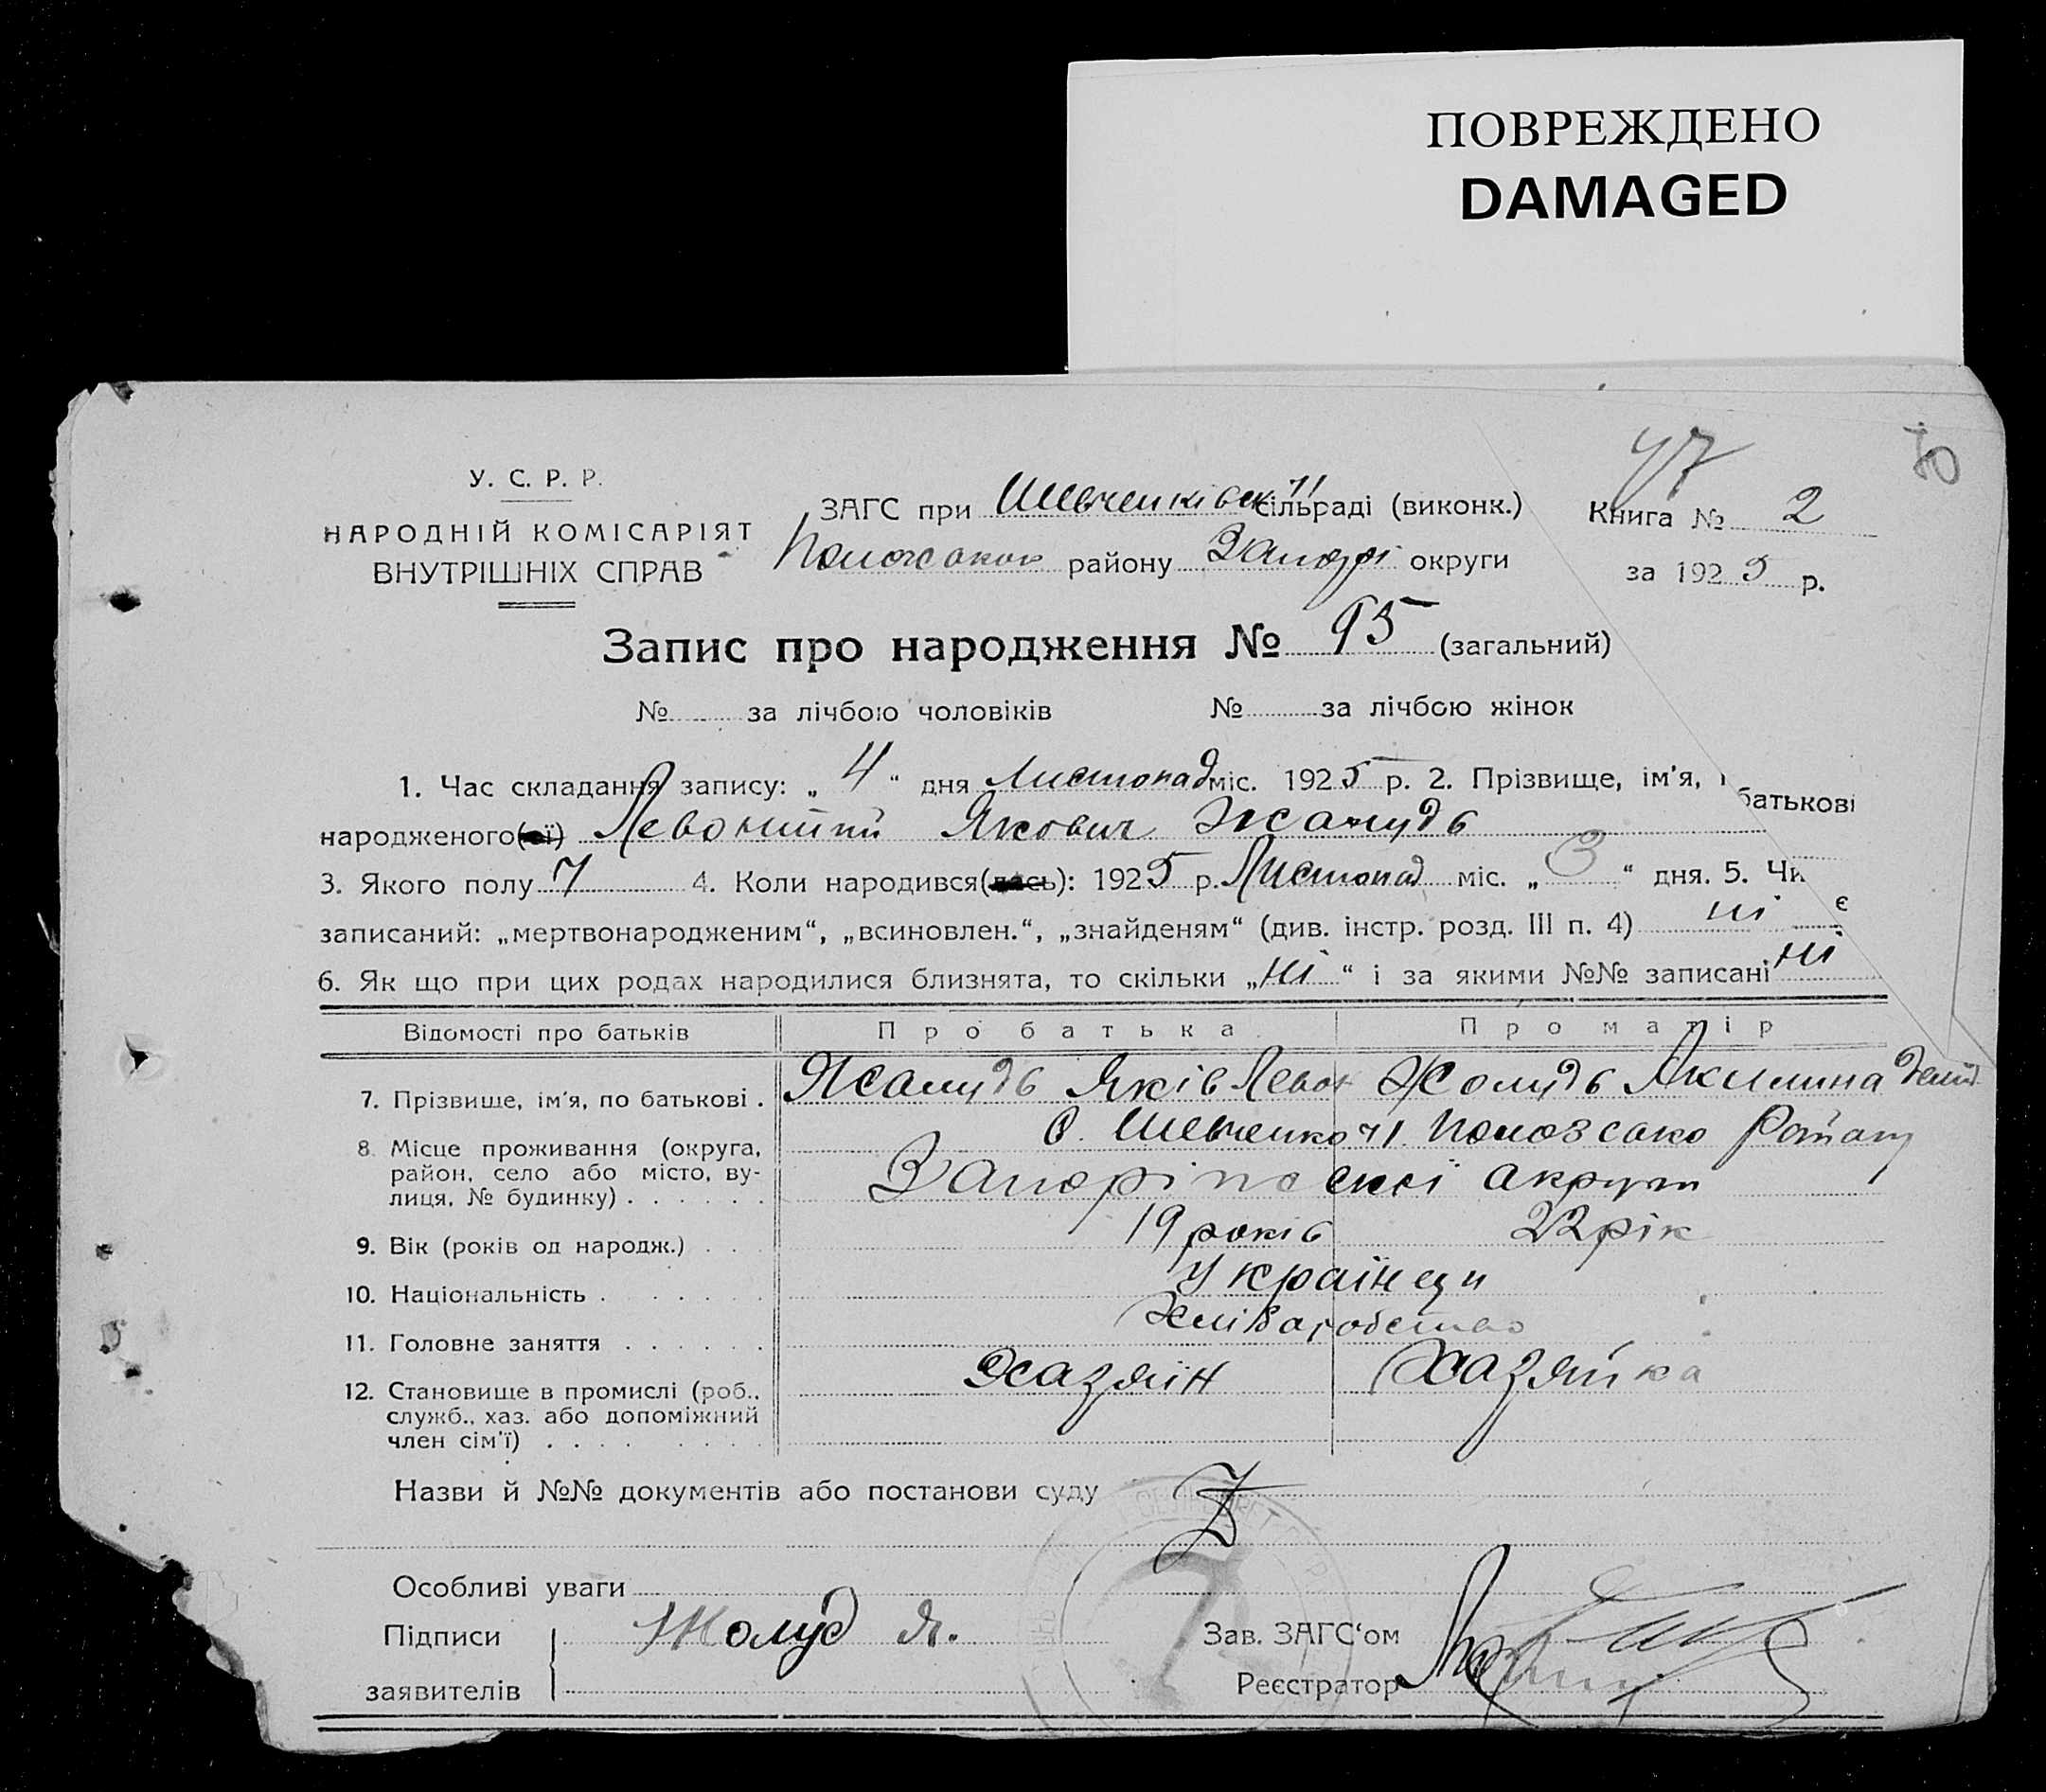 ПОВРЕЖДЕНО
DAMAGED
У. С. Р. Р.
НАРОДНІЙ КОМІСАРІЯТ
ВНУТРІШНІХ СПРАВ
47
70
ЗАГС при Шевченківск II сільраді (виконк.) Книга № 2
району Запорі округи за 1925 р.
Запис про народження № 95 (загальний)
№ за лічбою чоловіків № за лічбою жінок
1. Час складання запису: „ 4 “ дня Листопад міс. 1925 р. 2. Прізвище, ім'я, батькові
народженого(ої) Левонтий Якович Жалудь
3. Якого полу Ч 4. Коли народився(лась): 1925 р. Листопад міс. „ 3 “ дня. 5. Чи є
записаний: „мертвонародженим“, „всиновлен.“, „знайденям“ (див. інстр. розд. III п. 4) ні
6. Як що при цих родах народилися близнята, то скільки „ ні “ і за якими №№ записані ні
Відомості про батьків Про батька Про матір
7. Прізвище, ім'я, по батькові . Жалудь Яків Левон Жолудь Акилина
8. Місце проживання (округа, с. Шевченко II
район, село або місто, ву-
лиця, № будинку) . . . . . . акруги
9. Вік (років од народж.) . . . 19 років 22 рік
10. Національність . . . . . . . Українци
11. Головне заняття . . . . . . Хлібаробство
12. Становище в промислі (роб., Хазяїн Хазяйка
служб., хаз. або допоміжний
член сім'ї) . . . . . . . .
Назви й №№ документів або постанови суду
Особливі уваги
Підписи Жолуд Я. Зав. ЗАГС‘ом
заявителів Реєстратор